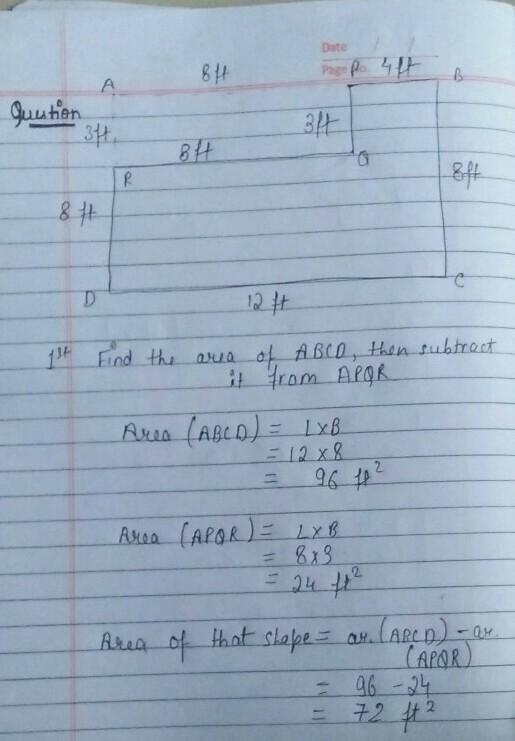 Date / /
Page No.
8ft P 4ft B
A
Question
3ft 3ft
8ft Q
R 8ft
8 ft
D C
12 ft
1st Find the area of ABCD, then subtract
it from APQR
Area (ABCD) = L×B
= 12 × 8
= 96 ft²
Area (APQR) = L×B
= 8×3
= 24 ft²
Area of that shape = ar. (ABCD) - ar.
(APQR)
= 96 - 24
= 72 ft²